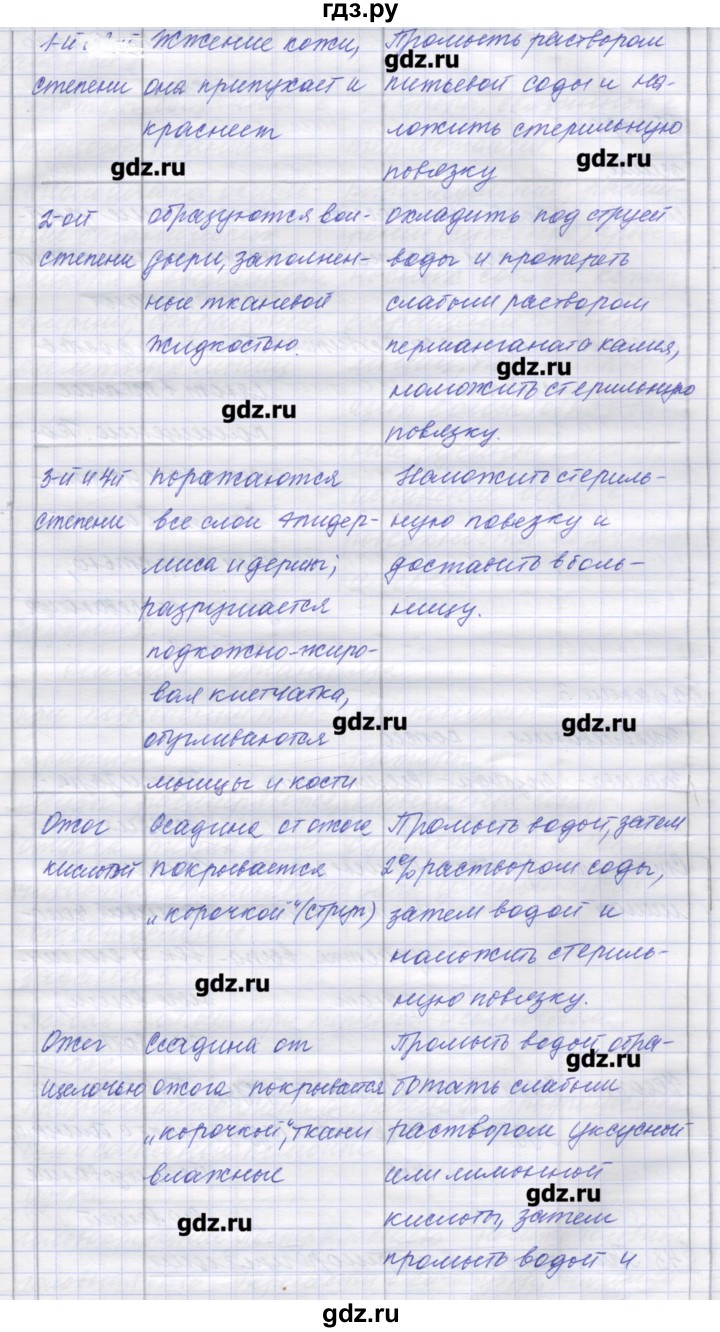 гдз.ру
1-й степени
Жжение кожи,
она припухает и
краснеет
Промыть раствором
питьевой соды и на-
ложить стерильную
повязку
2-ой
степени
образуются вол-
дыри, заполнен-
ные тканевой
жидкостью.
охладить под струей
воды и протереть
слабым раствором
перманганата калия,
наложить стерильную
повязку.
3-й и 4й
степени
поражаются
все слои эпидер-
миса и дермы;
разрушается
подкожно-жиро-
вая клетчатка,
обугливаются
мышцы и кости
Наложить стериль-
ную повезку и
доставить в боль-
ницу.
Ожог
кислотой
Ссадина от ожога
покрывается
„корочкой" (струп)
Промыть водой, затем
2% раствором соды,
затем водой и
наложить стериль-
ную повязку.
Ожег
щелочью
Ссадина от
ожога покрывается
„корочкой", ткани
влажные
Промыть водой, обра-
ботать слабым
раствором уксусной
или лимонной
кислоты, затем
промыть водой и
gdz.ru
gdz.ru
gdz.ru
gdz.ru
gdz.ru
gdz.ru
gdz.ru
gdz.ru
gdz.ru
gdz.ru
gdz.ru
gdz.ru